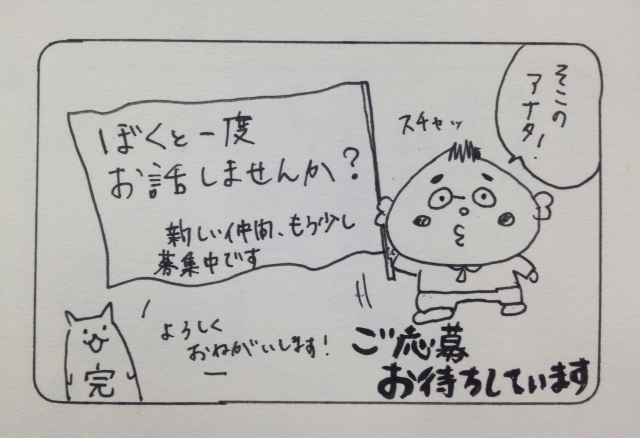 そこの
アナタ!
スチャッ
ぼくと一度
お話しませんか?
新しい仲間、もう少し
募集中です
よろしく
おねがいします!
完
ご応募
お待ちしています